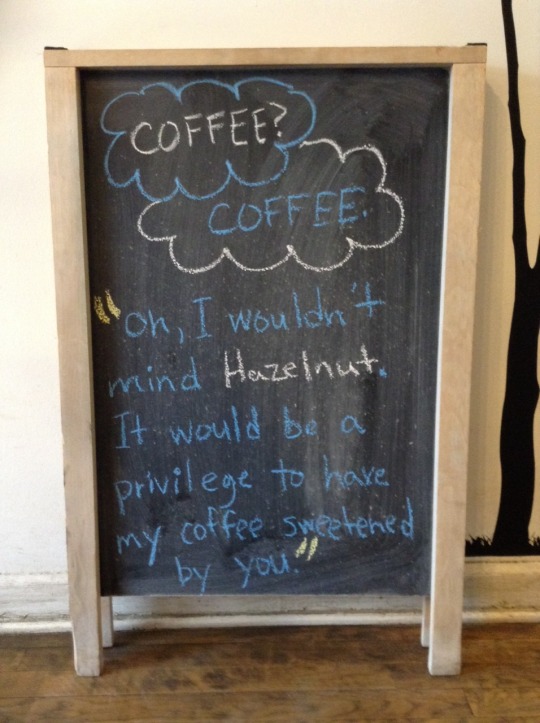 COFFEE?
COFFEE.
"Oh, I wouldn't
mind Hazelnut.
It would be a
privilege to have
my coffee sweetened
by you."